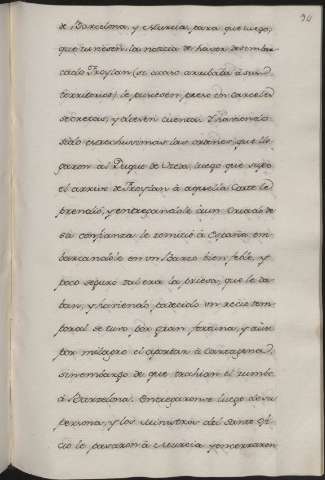 de Barcelona, y Murcia, para que luego,
que tuviesen la noticia de haver desembar-
cado Froylan (si acaso arrivara à sus
territorios) le pusiesen preso en carceles
secretas, y diesen cuenta. Y haviendo
sido estrechissimas las ordenes, que lle-
garon al Duque de Uceda, luego que supo
el arrivo de Froylan à aquella Corte le
prendió, y entregandole à un Criado de
su confianza le remitió à España em-
barcandole en un barco bien feble, y
poco seguro tal era la priesa, que le da-
ban, y haviendo padecido un recio tem-
poral se tuvo por gran fortuna, y aun
por milagro el aportar à Cartagena,
sinembargo de que trahian el rumbo
à Barcelona. Entregaronse luego de su
persona, y los Ministros del Santo Ofi-
cio le pasaron à Murcia y encerraron